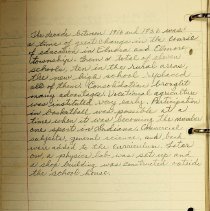 The decade between 1916 and 1926 was
a time of great change in the course
of education in Elnora and Elmore
Township. From a total of eleven
schools, ten in the rural areas,
the new high school replaced
all of them. Consolidation brought
many advantages. Vocational agriculture
was instituted very early. Participation
in basketball was possible at a
time when it was becoming the number
one sport in Indiana. Commercial
subjects, general science, and band
were added to the curriculum. Later
on a physics lab was set up and
a shop building was constructed outside
the school house.